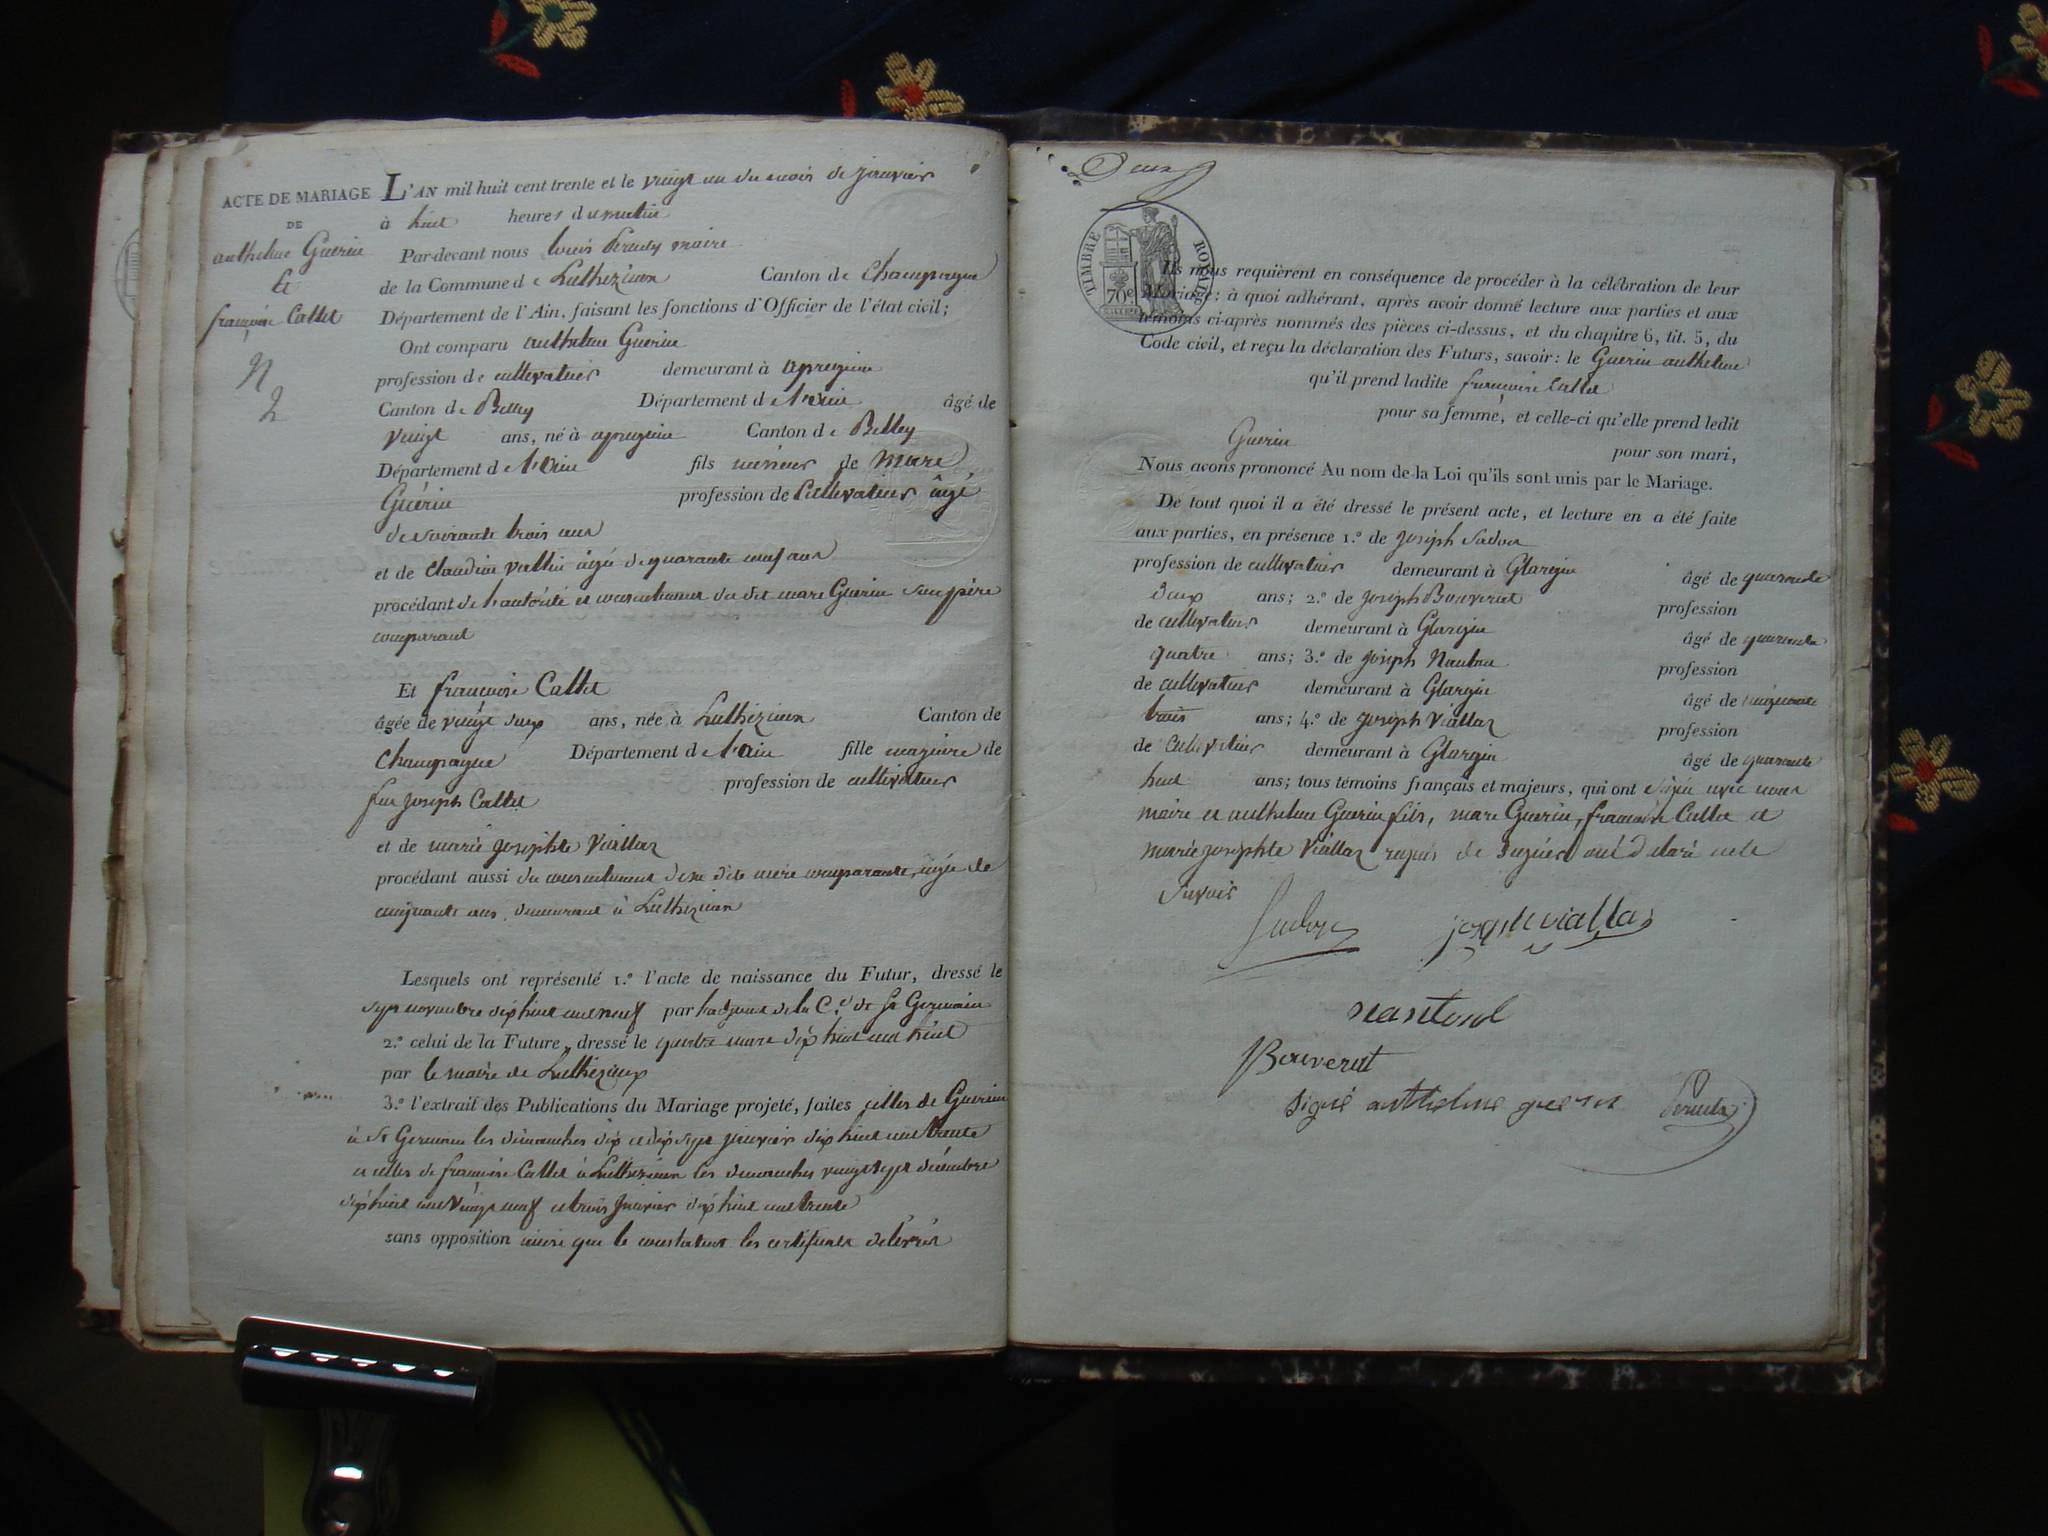 ACTE DE MARIAGE
DE
anthelme Guerin
et
françoise Callet
N
2
L'AN mil huit cent trente et le vingt un du mois de janvier
à huit heures du matin
Par-devant nous louis maire
de la Commune de Luthezieux Canton de Champagne
Département de l'Ain, faisant les fonctions d'Officier de l'état civil;
Ont comparu anthelme Guerin
profession de cultivateur demeurant à apregnin
Canton de Belley Département de l'ain âgé de
vingt ans, né à apregnin Canton de Belley
Département de l'ain fils mineur de Marc
Guérin profession de Cultivateur âgé
de soixante trois ans
et de Claudine vallin âgée de quarante neuf ans
procédant de l'autorité et consentement du dit marc Guerin son père
comparant
Et françoise Callet
âgée de vingt deux ans, née à Luthezieux Canton de
Champagne Département de l'ain fille majeure de
feu joseph Callet profession de cultivateur
et de marie josephte Viallaz
procédant aussi du consentement de sa dite mère comparante, âgée de
cinquante ans, demeurant à Luthezieux
Lesquels ont représenté 1.° l'acte de naissance du Futur, dressé le
sept novembre dix huit cent neuf par l'adjoint de la C.e de St Germain
2.° celui de la Future, dressé le quatre mars dix huit cent huit
par le maire de Luthezieux
3.° l'extrait des Publications du Mariage projeté, faites celles de Guerin
à St Germain les dimanches dix et dix sept janvier dix huit cent trente
et celles de françoise Callet à Luthezieux les dimanches vingt sept décembre
dix huit cent vingt neuf et trois janvier dix huit cent trente
sans opposition ainsi que le constatent les certificats délivrés
Deux
TIMBRE ROYAL
70c
Ils nous requièrent en conséquence de procéder à la célébration de leur
Mariage: à quoi adhérant, après avoir donné lecture aux parties et aux
témoins ci-après nommés des pièces ci-dessus, et du chapitre 6, tit. 5, du
Code civil, et reçu la déclaration des Futurs, savoir: le Guerin anthelme
qu'il prend ladite françoise Callet
pour sa femme, et celle-ci qu'elle prend ledit
Guerin pour son mari,
Nous avons prononcé Au nom de la Loi qu'ils sont unis par le Mariage.
De tout quoi il a été dressé le présent acte, et lecture en a été faite
aux parties, en présence 1.° de joseph
profession de cultivateur demeurant à Glargin âgé de quarante
deux ans; 2.° de joseph Bouverat profession
de cultivateur demeurant à Glargin âgé de quarante
quatre ans; 3.° de joseph profession
de cultivateur demeurant à Glargin âgé de cinquante
trois ans; 4.° de joseph Viallaz profession
de Cultivateur demeurant à Glargin âgé de quarante
huit ans; tous témoins français et majeurs, qui ont signé avec nous
maire et anthelme Guerin fils, marc Guerin, françoise Callet et
marie josephte Viallaz requis de signer ont déclaré ne le
Savoir
joseph viallaz
Bouverat
Signé anthelme guerin